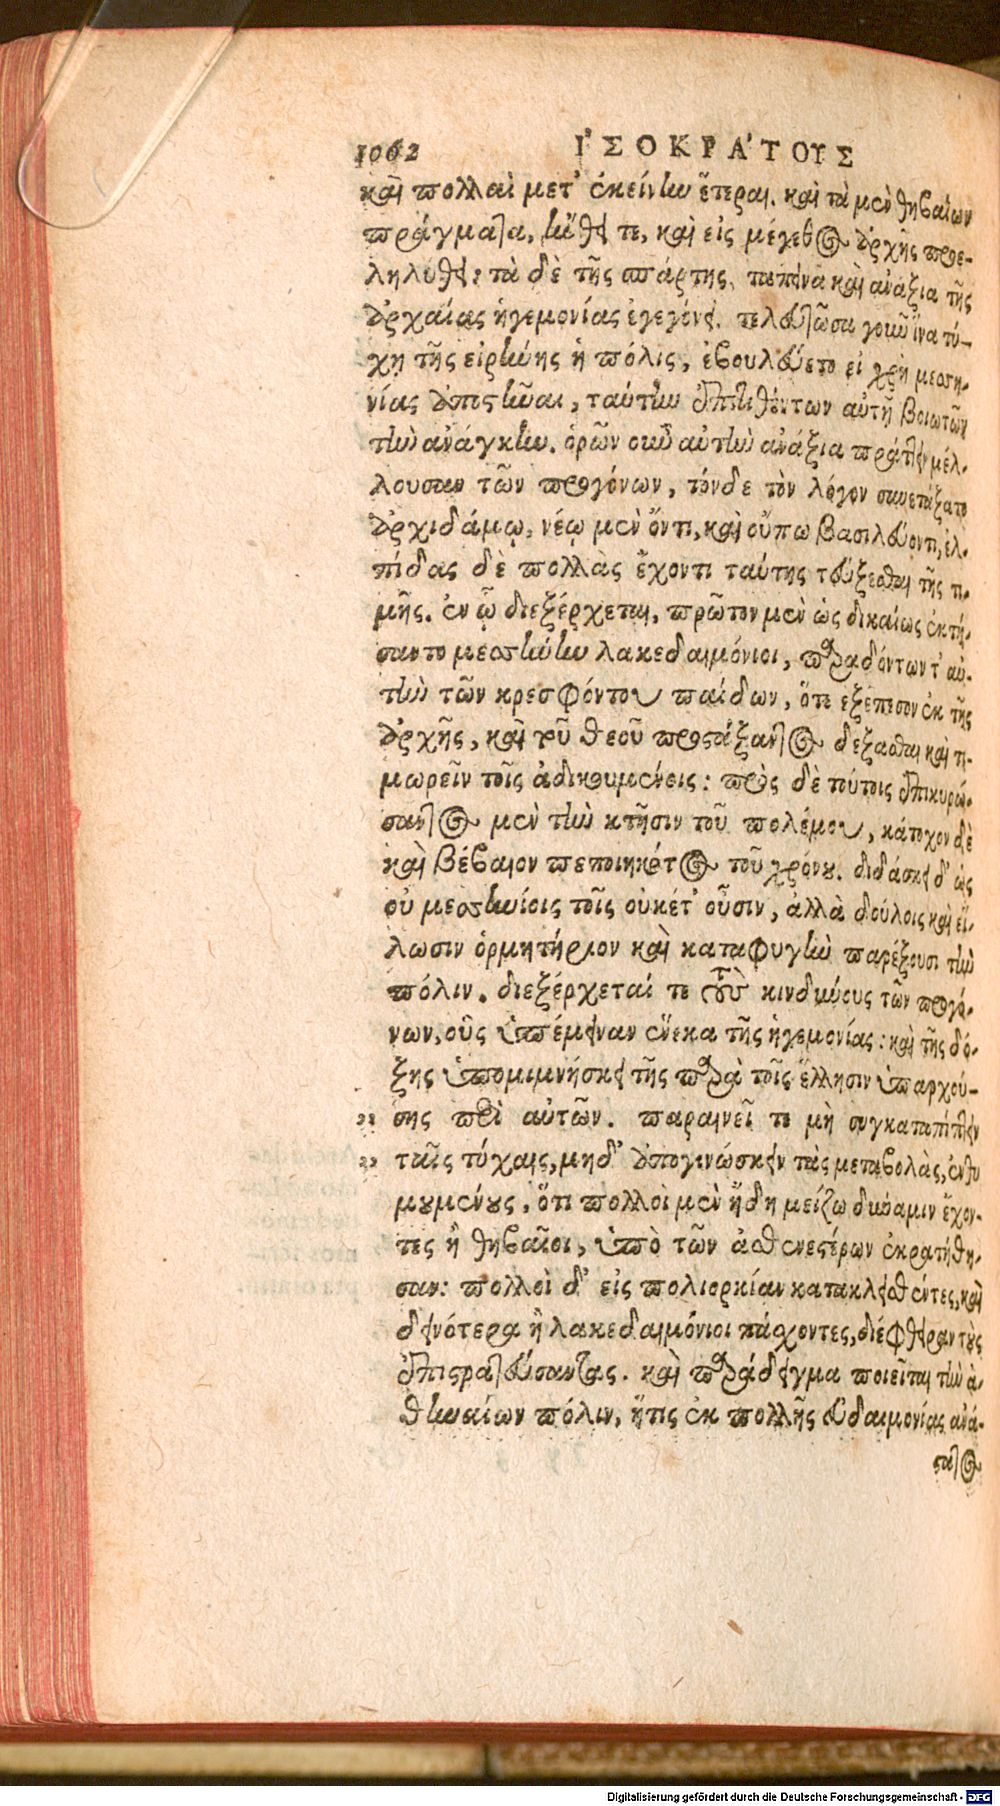 1062 Ἰ'ΣΟΚΡΑ'ΤΟΥΣ
καὶ πολλαὶ μετ' ἐκείνην ἕτεραι. καὶ τὰ μὲν θηβαίων
πράγματα, ηὔθει τε, καὶ εἰς μέγεθος ἀρχῆς προε-
ληλύθει: τὰ δὲ τῆς σπάρτης, ταπεινὰ καὶ ἀνάξια τῆς
ἀρχαίας ἡγεμονίας ἐγεγόνει. τελευτῶσα γοῦν ἵνα τύ-
χῃ τῆς εἰρήνης ἡ πόλις, ἐβουλεύετο εἰ χρὴ μεσση-
νίας ἀποστῆναι, ταύτην ἐπιτιθέντων αὐτῇ βοιωτῶν
τὴν ἀνάγκην. ὁρῶν οὖν αὐτὴν ἀνάξια πράττειν μέλ-
λουσαν τῶν προγόνων, τόνδε τὸν λόγον συνετάξατο
ἀρχιδάμῳ, νέῳ μὲν ὄντι, καὶ οὔπω βασιλεύοντι, ἐλ-
πίδας δὲ πολλὰς ἔχοντι ταύτης τεύξεσθαι τῆς τι-
μῆς. ἐν ᾧ διεξέρχεται, πρῶτον μὲν ὡς δικαίως ἐκτή-
σαντο μεσσήνην λακεδαιμόνιοι, παραδόντων τ' αὐ-
τὴν τῶν κρεσφόντου παίδων, ὅτε ἐξέπεσον ἐκ τῆς
ἀρχῆς, καὶ τοῦ θεοῦ προστάξαντος δέξασθαι καὶ τι-
μωρεῖν τοῖς ἀδικουμένοις: πρὸς δὲ τούτοις ἐπικυρώ-
σαντος μὲν τὴν κτῆσιν τοῦ πολέμου, κάτοχον δὲ
καὶ βέβαιον πεποιηκότος τοῦ χρόνου. διδάσκει δ' ὡς
οὐ μεσσηνίοις τοῖς οὐκέτ' οὖσιν, ἀλλὰ δούλοις καὶ εἵ-
λωσιν ὁρμητήριον καὶ καταφυγὴν παρέξουσι τὴν
πόλιν. διεξέρχεταί τε τοὺς κινδύνους τῶν προγό-
νων, οὓς ὑπέμειναν ἕνεκα τῆς ἡγεμονίας: καὶ τῆς δό-
ξης ὑπομιμνήσκει τῆς παρὰ τοῖς ἕλλησιν ὑπαρχού-
„ σης περὶ αὐτῶν. παραινεῖ τε μὴ συγκαταπίπτειν
„ ταῖς τύχαις, μηδ' ἀπογινώσκειν τὰς μεταβολὰς, ἐνθυ
μουμένους, ὅτι πολλοὶ μὲν ἤδη μείζω δύναμιν ἔχον-
τες ἢ θηβαῖοι, ὑπὸ τῶν ἀσθενεστέρων ἐκρατήθη-
σαν: πολλοὶ δ' εἰς πολιορκίαν κατακλεισθέντες, καὶ
δεινότερα ἢ λακεδαιμόνιοι πάσχοντες, διέφθειραν τοὺς
ἐπιστρατεύσαντας. καὶ παράδειγμα ποιεῖται τὴν ἀ-
θηναίων πόλιν, ἥτις ἐκ πολλῆς εὐδαιμονίας ἀνά-
στατος
Digitalisierung gefördert durch die Deutsche Forschungsgemeinschaft - DFG